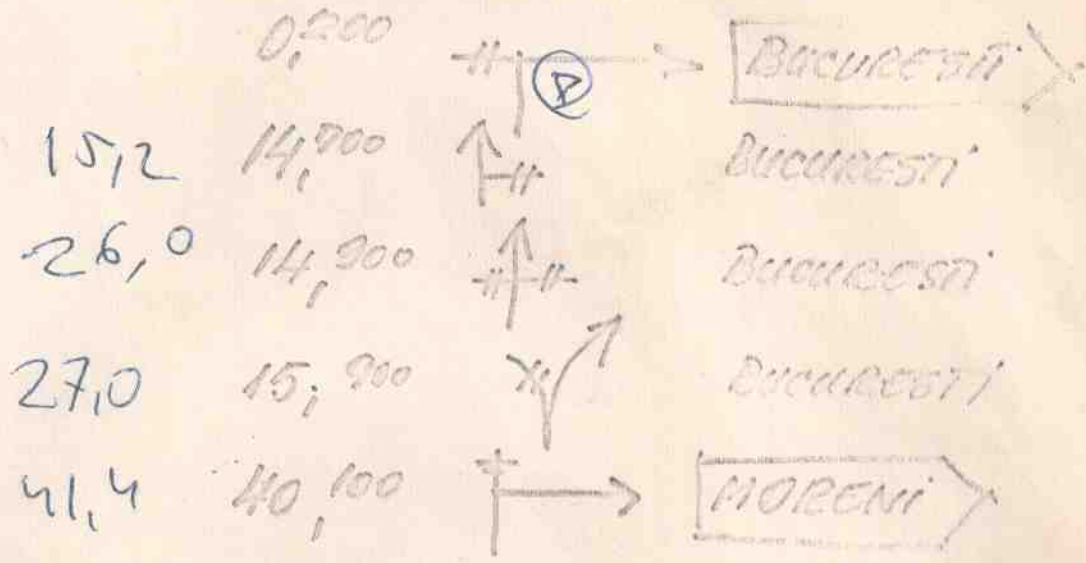 0,200 BUCURESTI
15,2 14,700 BUCURESTI
26,0 14,900 BUCURESTI
27,0 15,900 BUCURESTI
41,4 40,100 MORENI